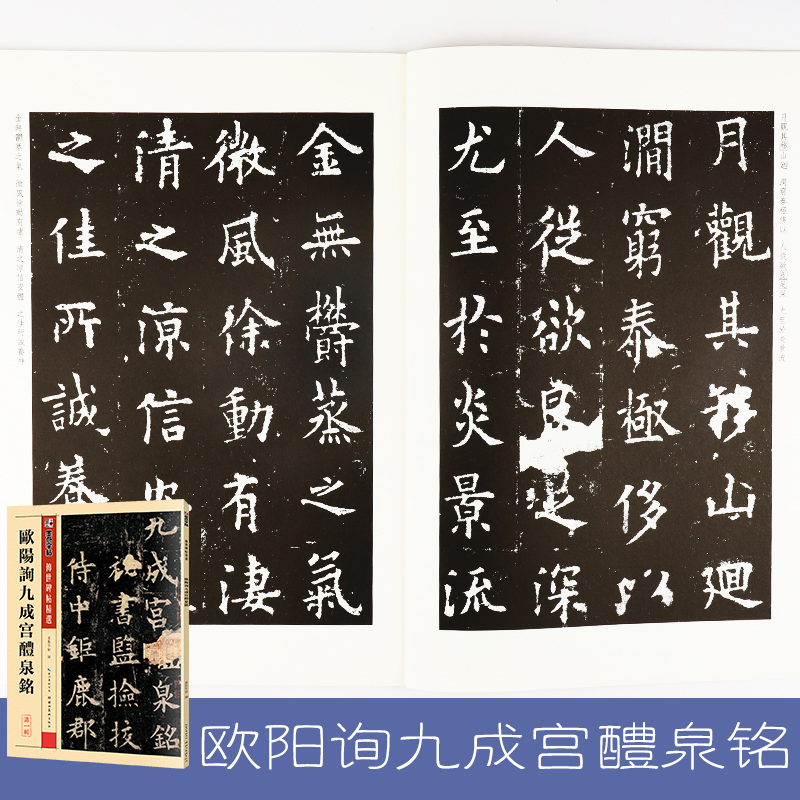 月觀其移山迴 澗窮泰極侈以 人從欲良足深 尤至於炎景流
月觀其移山迴
澗窮泰極侈以
人從欲良足深
尤至於炎景流
金無鬱蒸之氣
微風徐動有淒
清之涼信安
之佳所誠養
金無鬱蒸之氣 微風徐動有淒 清之涼信安體 之佳所誠養神
九成宮醴泉銘
秘書監撿挍
侍中鉅鹿郡
傳世碑帖精選
歐陽詢九成宮醴泉銘
第一輯
欧阳询九成宫醴泉铭